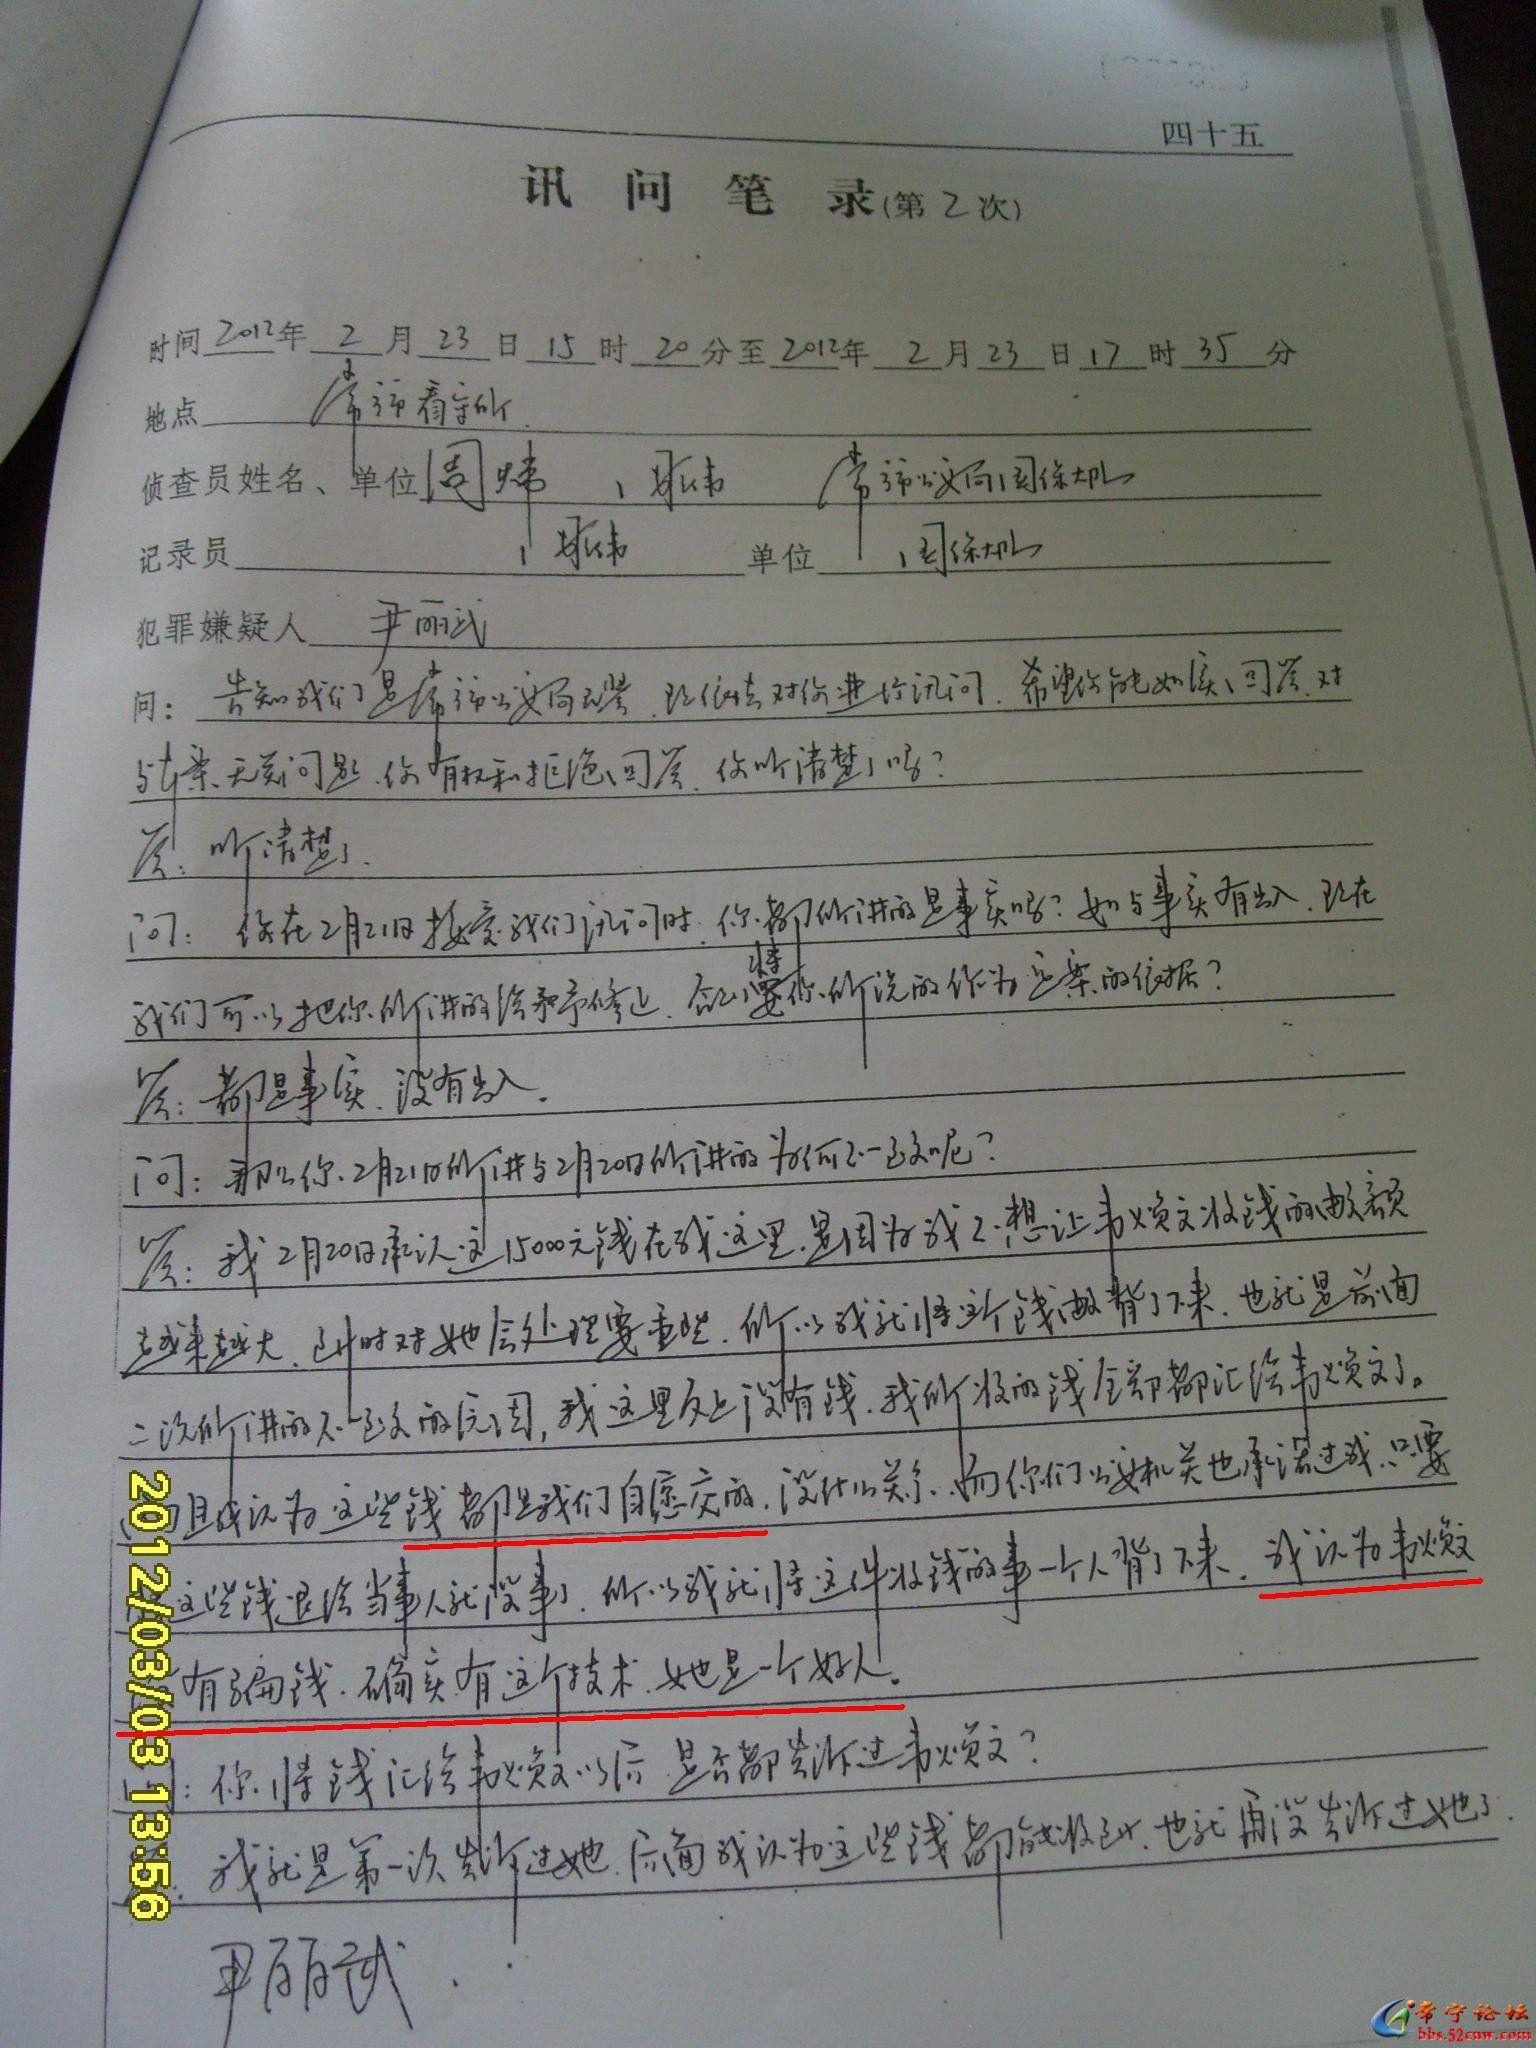 四十五
讯问笔录(第2次)
时间2012年2月23日15时20分至2012年2月23日17时35分
地点 常市看守所
侦查员姓名、单位 周炜、 伟 常市公安局国保大队
记录员 伟 单位 国保大队
犯罪嫌疑人 尹丽武
问：告知我们是常市公安局民警,现依法对你进行讯问,希望你能如实回答,对
与本案无关问题,你有权利拒绝回答,你听清楚了吗？
答：听清楚了.
问：你在2月21日接受我们讯问时,你都所讲的是事实吗？如与事实有出入,现在
我们可以把你所讲的给予修正,否则将要你所说的作为定案的依据？
答：都是事实,没有出入.
问：那么你2月21日所讲与2月20日所讲的为何不一致呢？
答：我2月20日承认这15000元钱在我这里,是因为我不想让韦焕文收钱的数额
越来越大,到时对她会处理要重些,所以我就将这个钱数背了下来,也就是前面
二次所讲的不一致的原因,我这里反正没有钱,我所收的钱全部都汇给韦焕文了。
而且我认为这些钱都是我们自愿交的,没什么关系,而你们公安机关也承诺过我,只要
这些钱退给当事人就没事了,所以我就将这件收钱的事一个人背了下来,我认为韦焕文
有骗钱,确实有这个技术,她是一个好人。
问：你将钱汇给韦焕文以后,是否都告诉过韦焕文？
我就是第一次告诉过她,后面我认为这些钱都能收到,也就再没告诉过她了.
尹丽武
2012/03/03 13:56
常宁论坛
bbs.52cnw.com